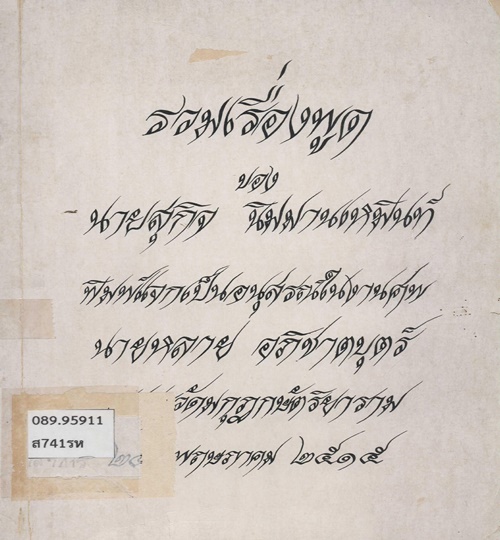 รวมเรื่องพูด
ของ
นายสุกิจ นิมมานเหมินท์
พิมพ์แจกเป็นอนุสรณ์ในงานศพ
นายหลาย อภิชาตบุตร์
วัดมกุฏกษัตริยาราม
พฤษภาคม ๒๕๑๕
089.95911
ส741รห